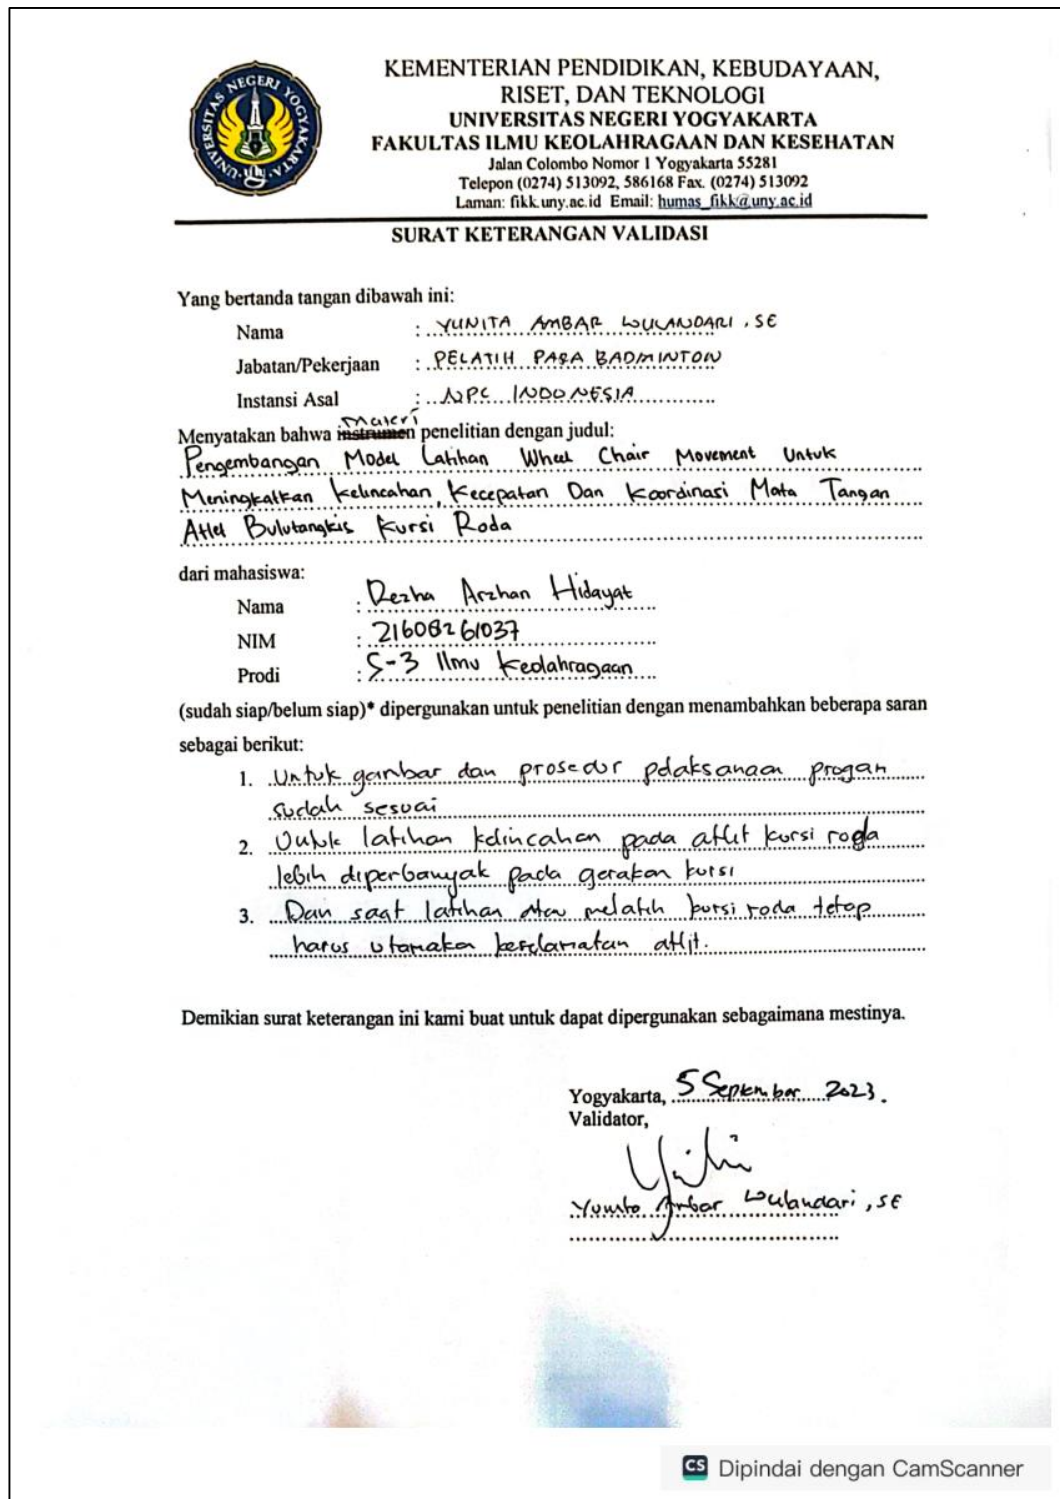 UNIVERSITAS NEGERI YOGYAKARTA
KEMENTERIAN PENDIDIKAN, KEBUDAYAAN,
RISET, DAN TEKNOLOGI
UNIVERSITAS NEGERI YOGYAKARTA
FAKULTAS ILMU KEOLAHRAGAAN DAN KESEHATAN
Jalan Colombo Nomor 1 Yogyakarta 55281
Telepon (0274) 513092, 586168 Fax. (0274) 513092
Laman: fikk.uny.ac.id Email: humas_fikk@uny.ac.id
SURAT KETERANGAN VALIDASI
Yang bertanda tangan dibawah ini:
Nama : YUNITA AMBAR WULANDARI, SE
Jabatan/Pekerjaan : PELATIH PARA BADMINTON
Instansi Asal : NPC INDONESIA
Materi
Menyatakan bahwa instrumen penelitian dengan judul:
Pengembangan Model Latihan Wheel Chair Movement Untuk
Meningkatkan Kelincahan, Kecepatan Dan Koordinasi Mata Tangan
Atlet Bulutangkis Kursi Roda
dari mahasiswa:
Nama : Rezha Arzhan Hidayat
NIM : 21608261037
Prodi : S-3 Ilmu Keolahragaan
(sudah siap/belum siap)* dipergunakan untuk penelitian dengan menambahkan beberapa saran
sebagai berikut:
1. Untuk gambar dan prosedur pelaksanaan progran
sudah sesuai
2. Untuk latihan kelincahan pada atlit kursi roda
lebih diperbanyak pada gerakan kursi
3. Dan saat latihan atau melatih kursi roda tetap
harus utamaka keselamatan atlit.
Demikian surat keterangan ini kami buat untuk dapat dipergunakan sebagaimana mestinya.
Yogyakarta, 5 September 2023.
Validator,
Yunita Ambar Wulandari, SE
CS Dipindai dengan CamScanner